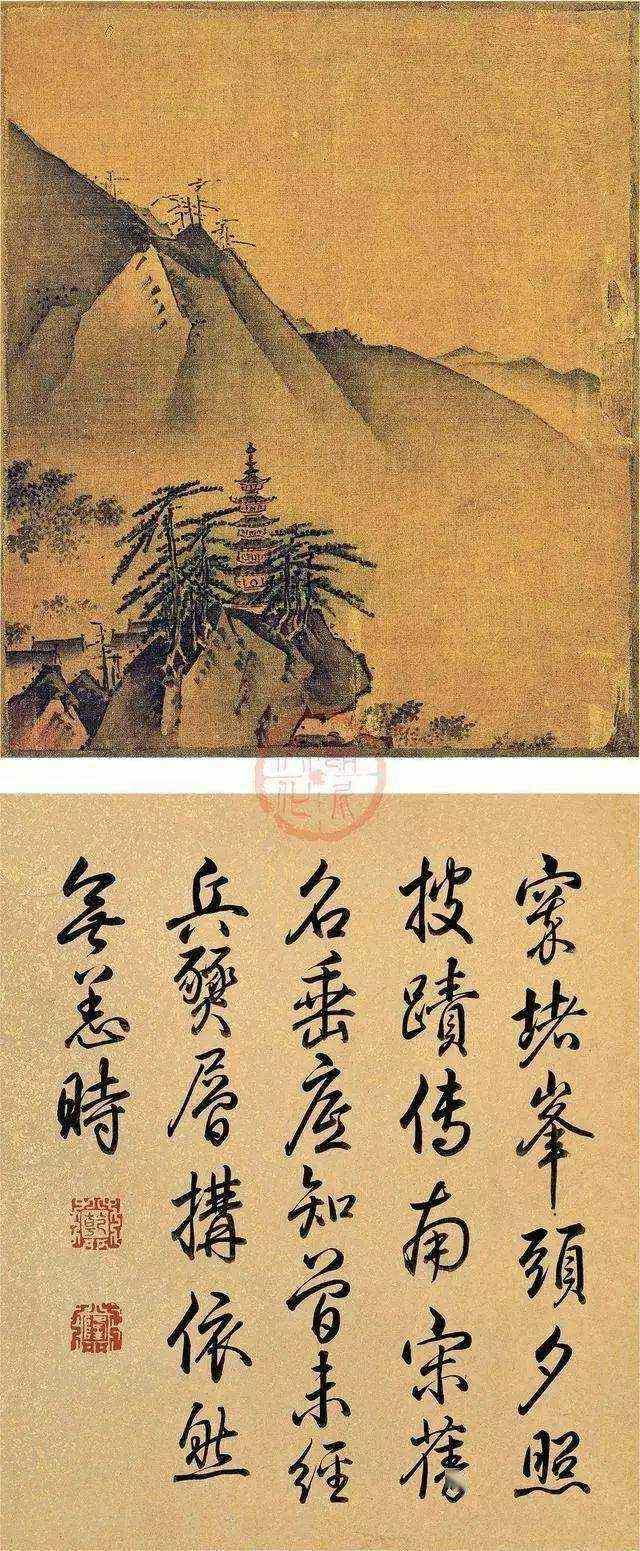 窣堵峯頭夕照
披蹟傳南宋舊
名垂應知曾未經
兵燹層構依然
無恙時